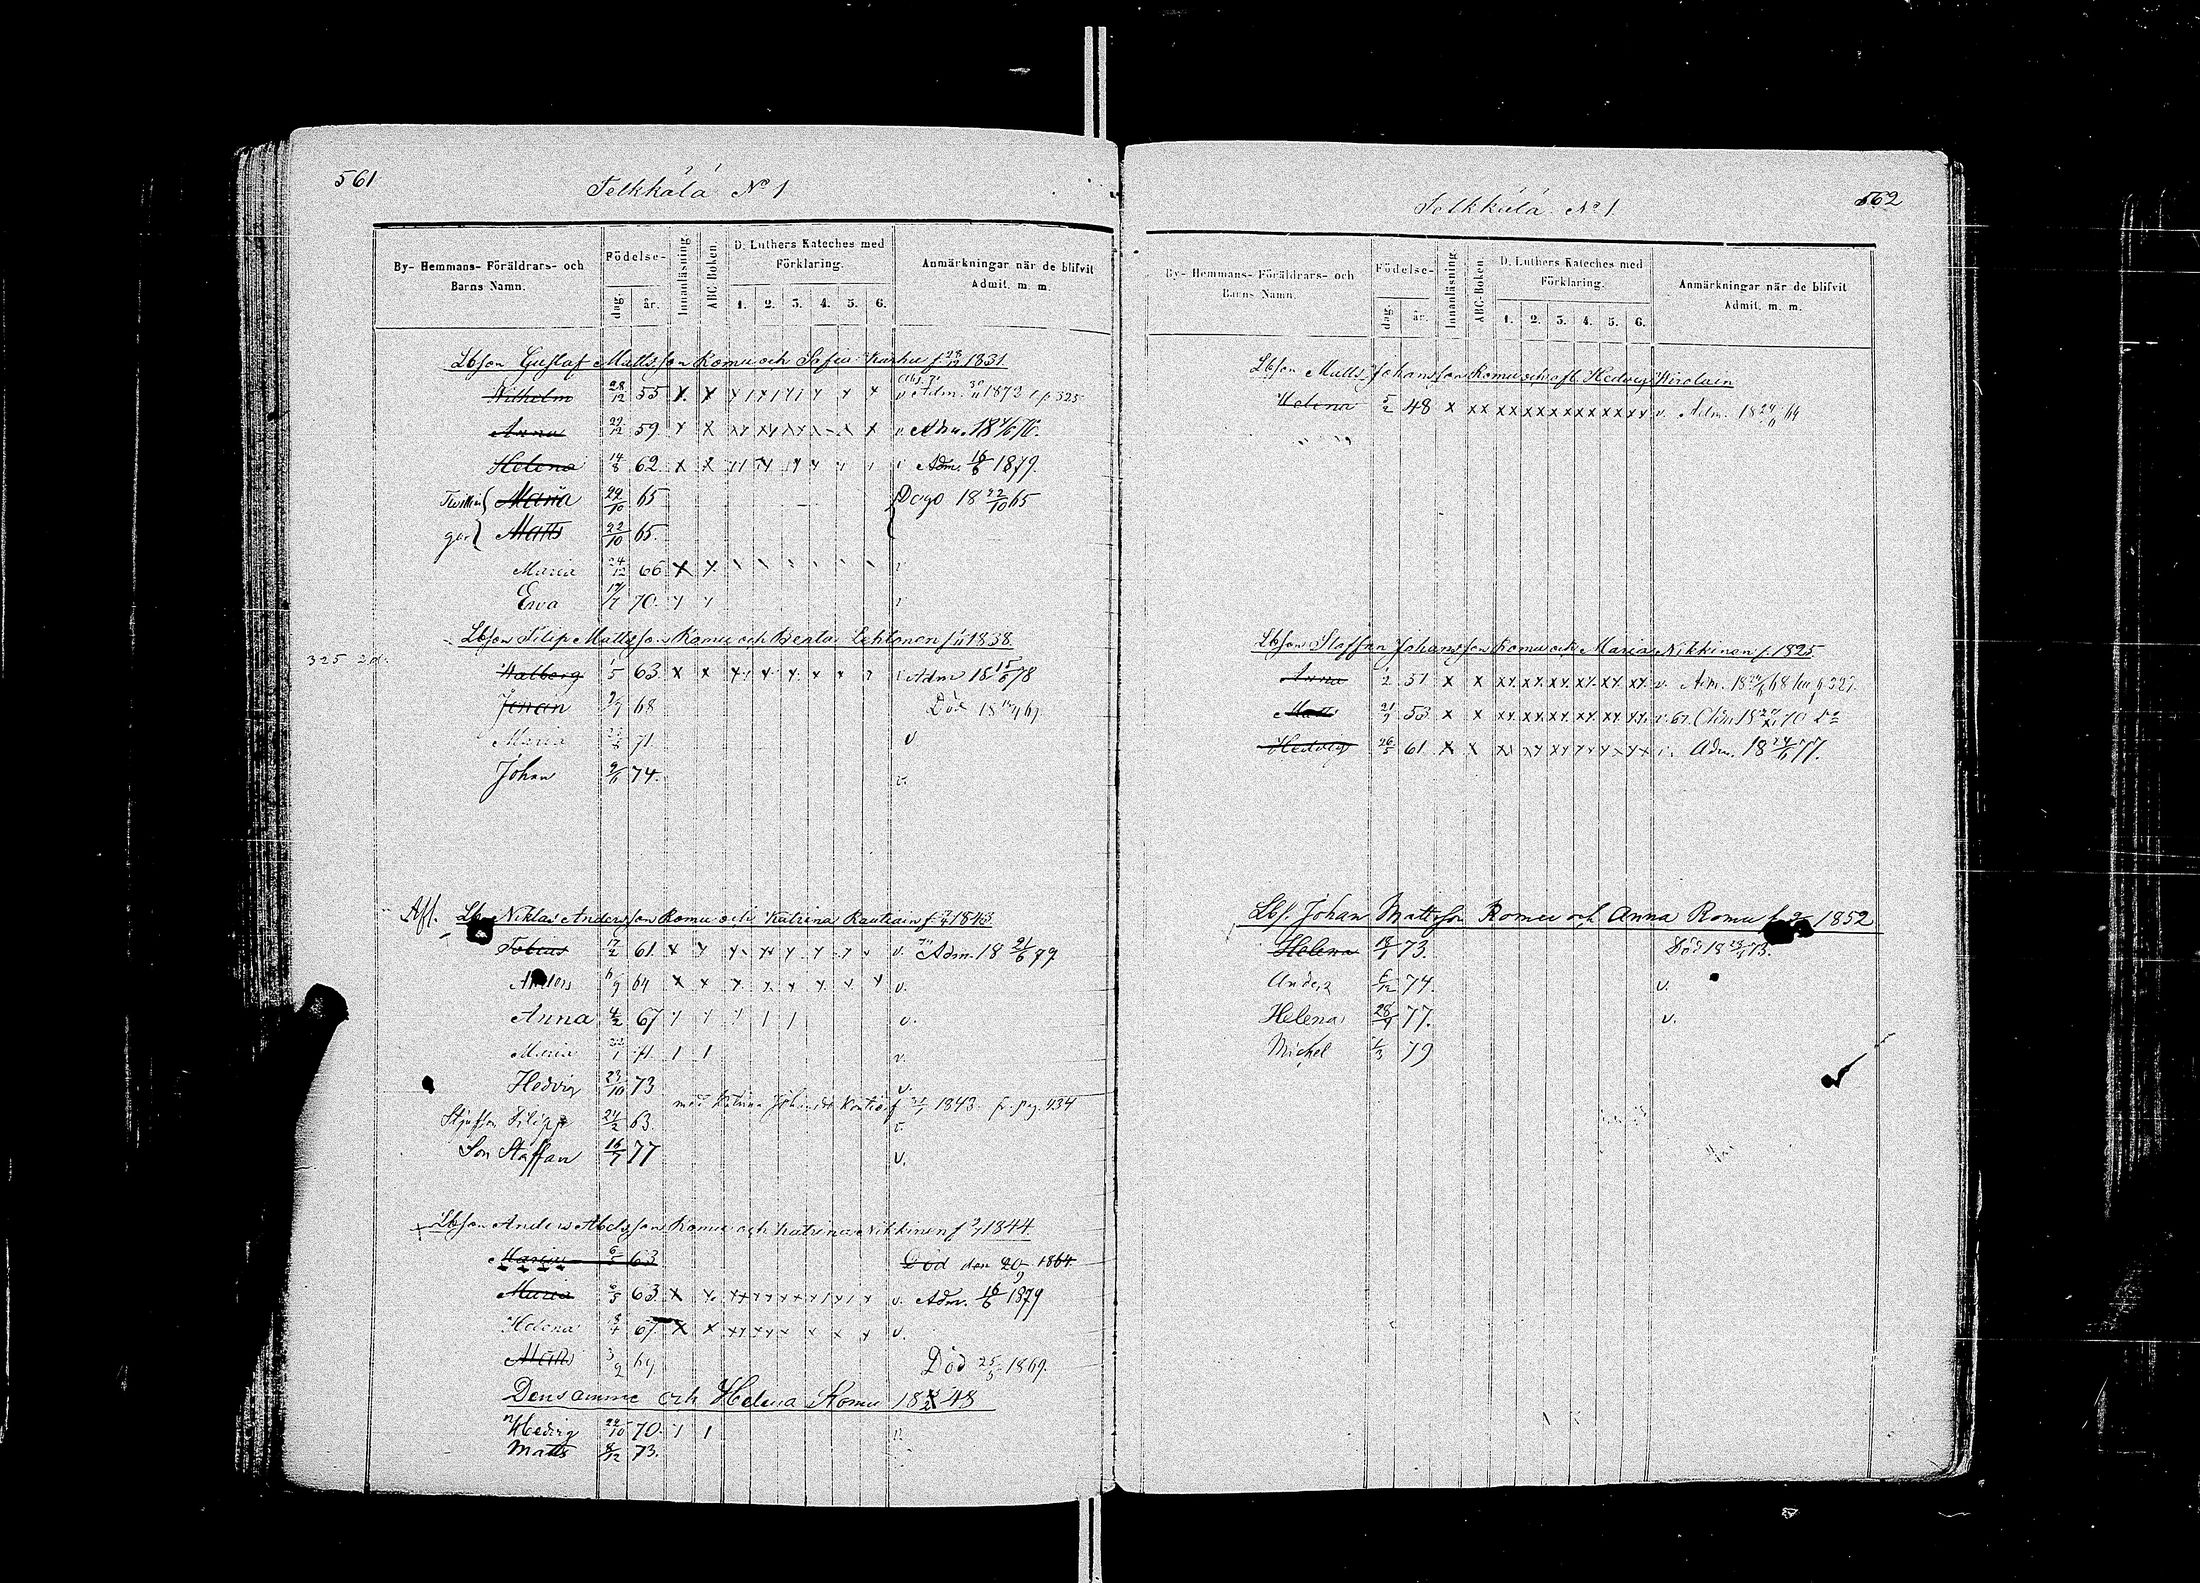 561
Telkkälä No 1
By- Hemmans- Föräldrars- och Barns Namn.
Födelse-
dag. år.
Innanläsning.
ABC-Boken.
D. Luthers Kateches med Förklaring.
1. 2. 3. 4. 5. 6.
Anmärkningar när de blifvit Admit. m. m.
Lbson Gustaf Mattsson Romu och Sofia Karhu f. 28/12 1831.
Wilhelm 28/12 55 v Adm. 1873
Anna 59 v. Adm.
Helena 14/8 62 v Adm. 16/6 1879.
Maria 22/10 65 Dogo 18 22/10 65
Matts 22/10 65.
Maria 24/12 66 v
Ewa 70. v
Lbson Filip Mattsson Romu och Beata Lehtonen f. 1838.
325
Walborg 1/5 63 Adm 18 15/6 78
Johan 68 Död 18 69
Maria 71 v
Johan 74. v.
Afl. Lbs Niklas Andersson Romu och Katrina Rautiain f. 1843
Tobias 17/2 61 v. Adm. 18 21/6 79
Anders 6/9 64 v.
Anna 4/2 67 v.
Maria 71 v.
Hedvig 23/10 73 v.
med Katrina 1843. fr. pag. 434
Styfson Filipp 24/2 63 v.
Son Staffan 16/7 77 v.
Lbson Anders Abelsson Romu och Katrina Nikkinen f. 1844.
Maria 6/5 63 Död den 20/9 1864
Maria 6/5 63 v. Adm. 16/6 1879
Helena 67 v.
Matts 3/2 69 Död 25/5 1869.
Densamme och Helena Romu 1848
Hedvig 22/10 70. v
Matts 8/12 73.
Telkkälä No 1
562
By- Hemmans- Föräldrars- och Barns Namn.
Födelse-
dag. år.
Innanläsning.
ABC-Boken.
D. Luthers Kateches med Förklaring.
1. 2. 3. 4. 5. 6.
Anmärkningar när de blifvit Admit. m. m.
Lbson Matts Johansson Romu och afl. Hedvig Hirolain
Helena 5/2 48 v. Adm. 18 64
Lbson Staffan Johansson Romu och Maria Nikkinen f. 1825.
Anna 1/2 51 v. Adm. 18 68
Matts 21/9 53 v.
Hedvig 26/5 61 v. Adm. 18 24/6 77.
Lbs. Johan Mattsson Romu och Anna Romu f. 1852
Helena 73. Död 18 73.
Anders 6/12 74. v.
Helena 77. v.
Michel 1/3 79